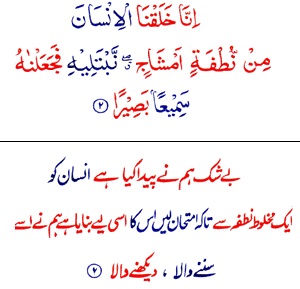 اِنَّا خَلَقْنَا الْاِنْسَانَ
مِنْ نُّطْفَةٍ اَمْشَاجٍ ۖ نَّبْتَلِيْهِ فَجَعَلْنٰهُ
سَمِيْعًۢا بَصِيْرًا ۝۲
بے شک ہم نے پیدا کیا ہے انسان کو
ایک مخلوط نطفہ سے تاکہ امتحان لیں اس کا اسی لیے بنایا ہے ہم نے اسے
سننے والا ، دیکھنے والا ۝۲